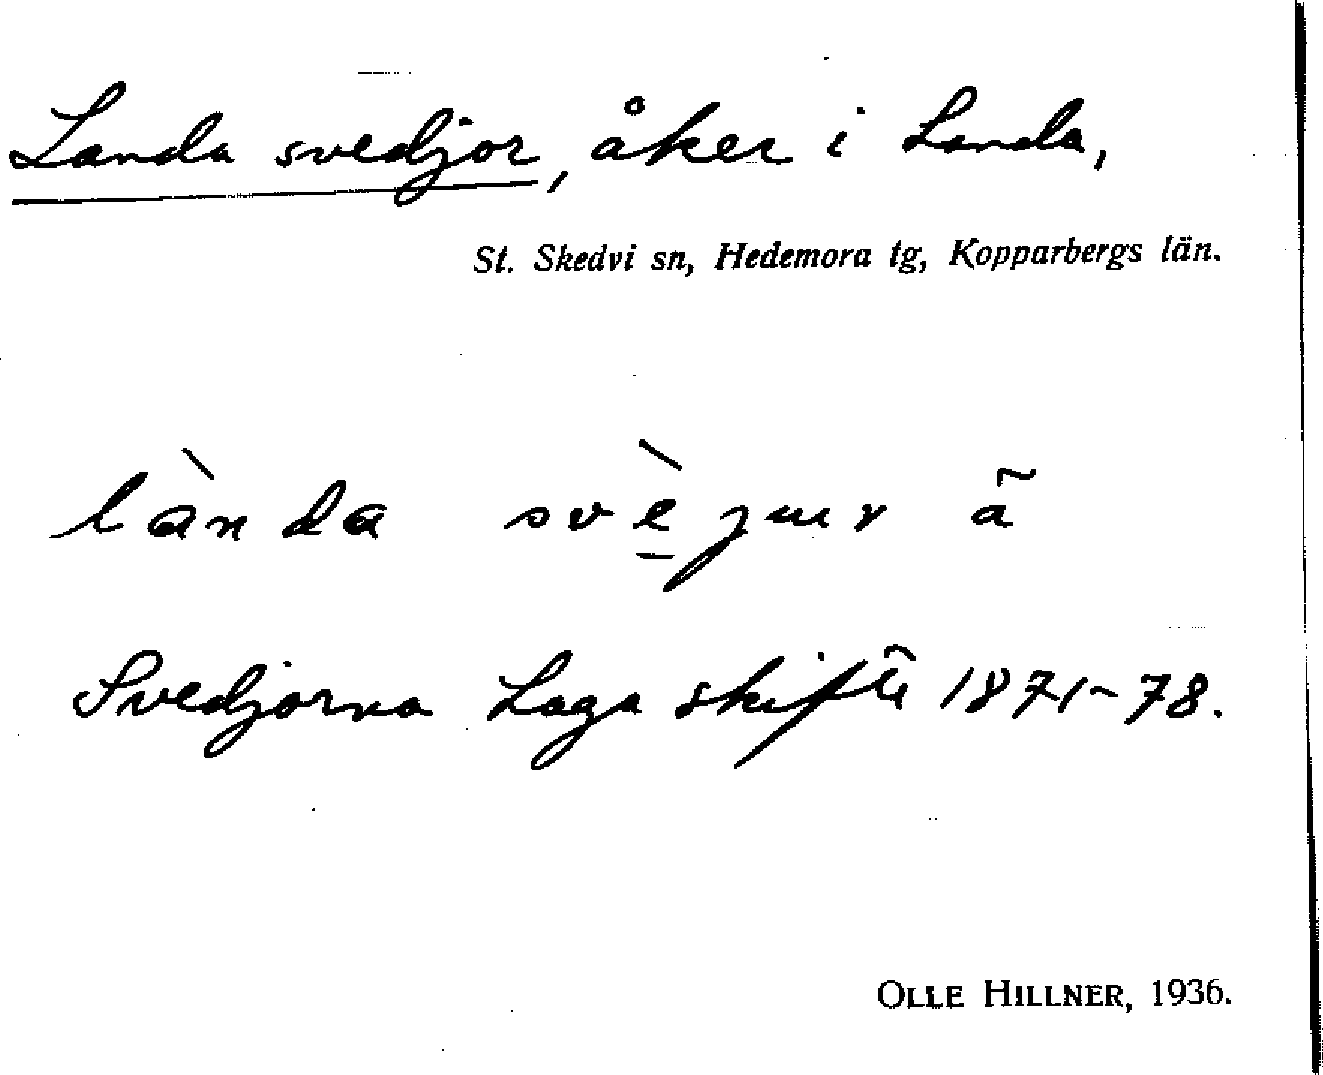 Landa svedjor, åker i Landa,
St. Skedvi sn, Hedemora tg, Kopparbergs län.
lànda svè̱jur ã
Svedjorna Laga skifte 1871-78.
OLLE HILLNER, 1936.